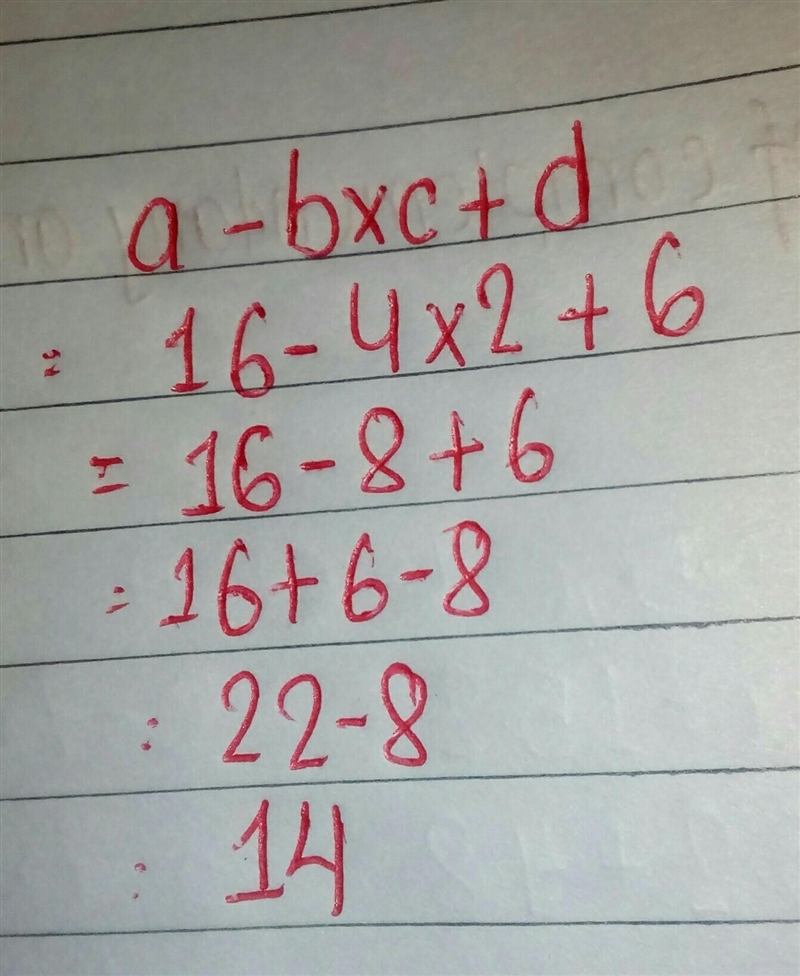 a - b×c + d
= 16 - 4×2 + 6
= 16 - 8 + 6
= 16 + 6 - 8
: 22 - 8
: 14